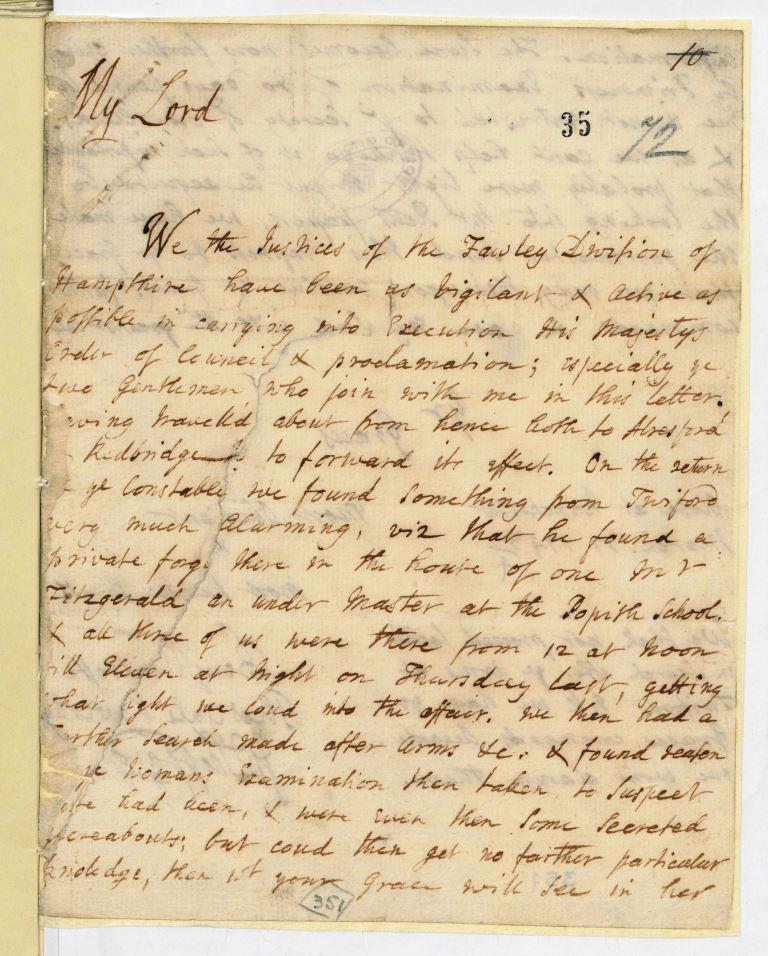 10
My Lord
35
72
We the Justices of the Fawley Division of
Hampshire have been as vigilant & active as
possible in carrying into Execution His Majestys
Order of Council & proclamation; especially ye
two Gentlemen who join with me in this letter.
having travelld about from hence both to Alresford
Redbridge to forward its effect. On the return
ye Constable we found something from Twiford
very much alarming, viz that he found a
private forge there in the house of one Mr
Fitzgerald an under Master at the Popish School.
& all three of us were there from 12 at Noon
till Eleven at Night on Thursday last, getting
what light we coud into the affair. we then had a
further Search made after arms &c. & found reason
ye Womans Examination then taken to Suspect
there had been, & were even then some Secreted
thereabouts; but coud then get no farther particular
knoledge, then wt your Grace will See in her
351